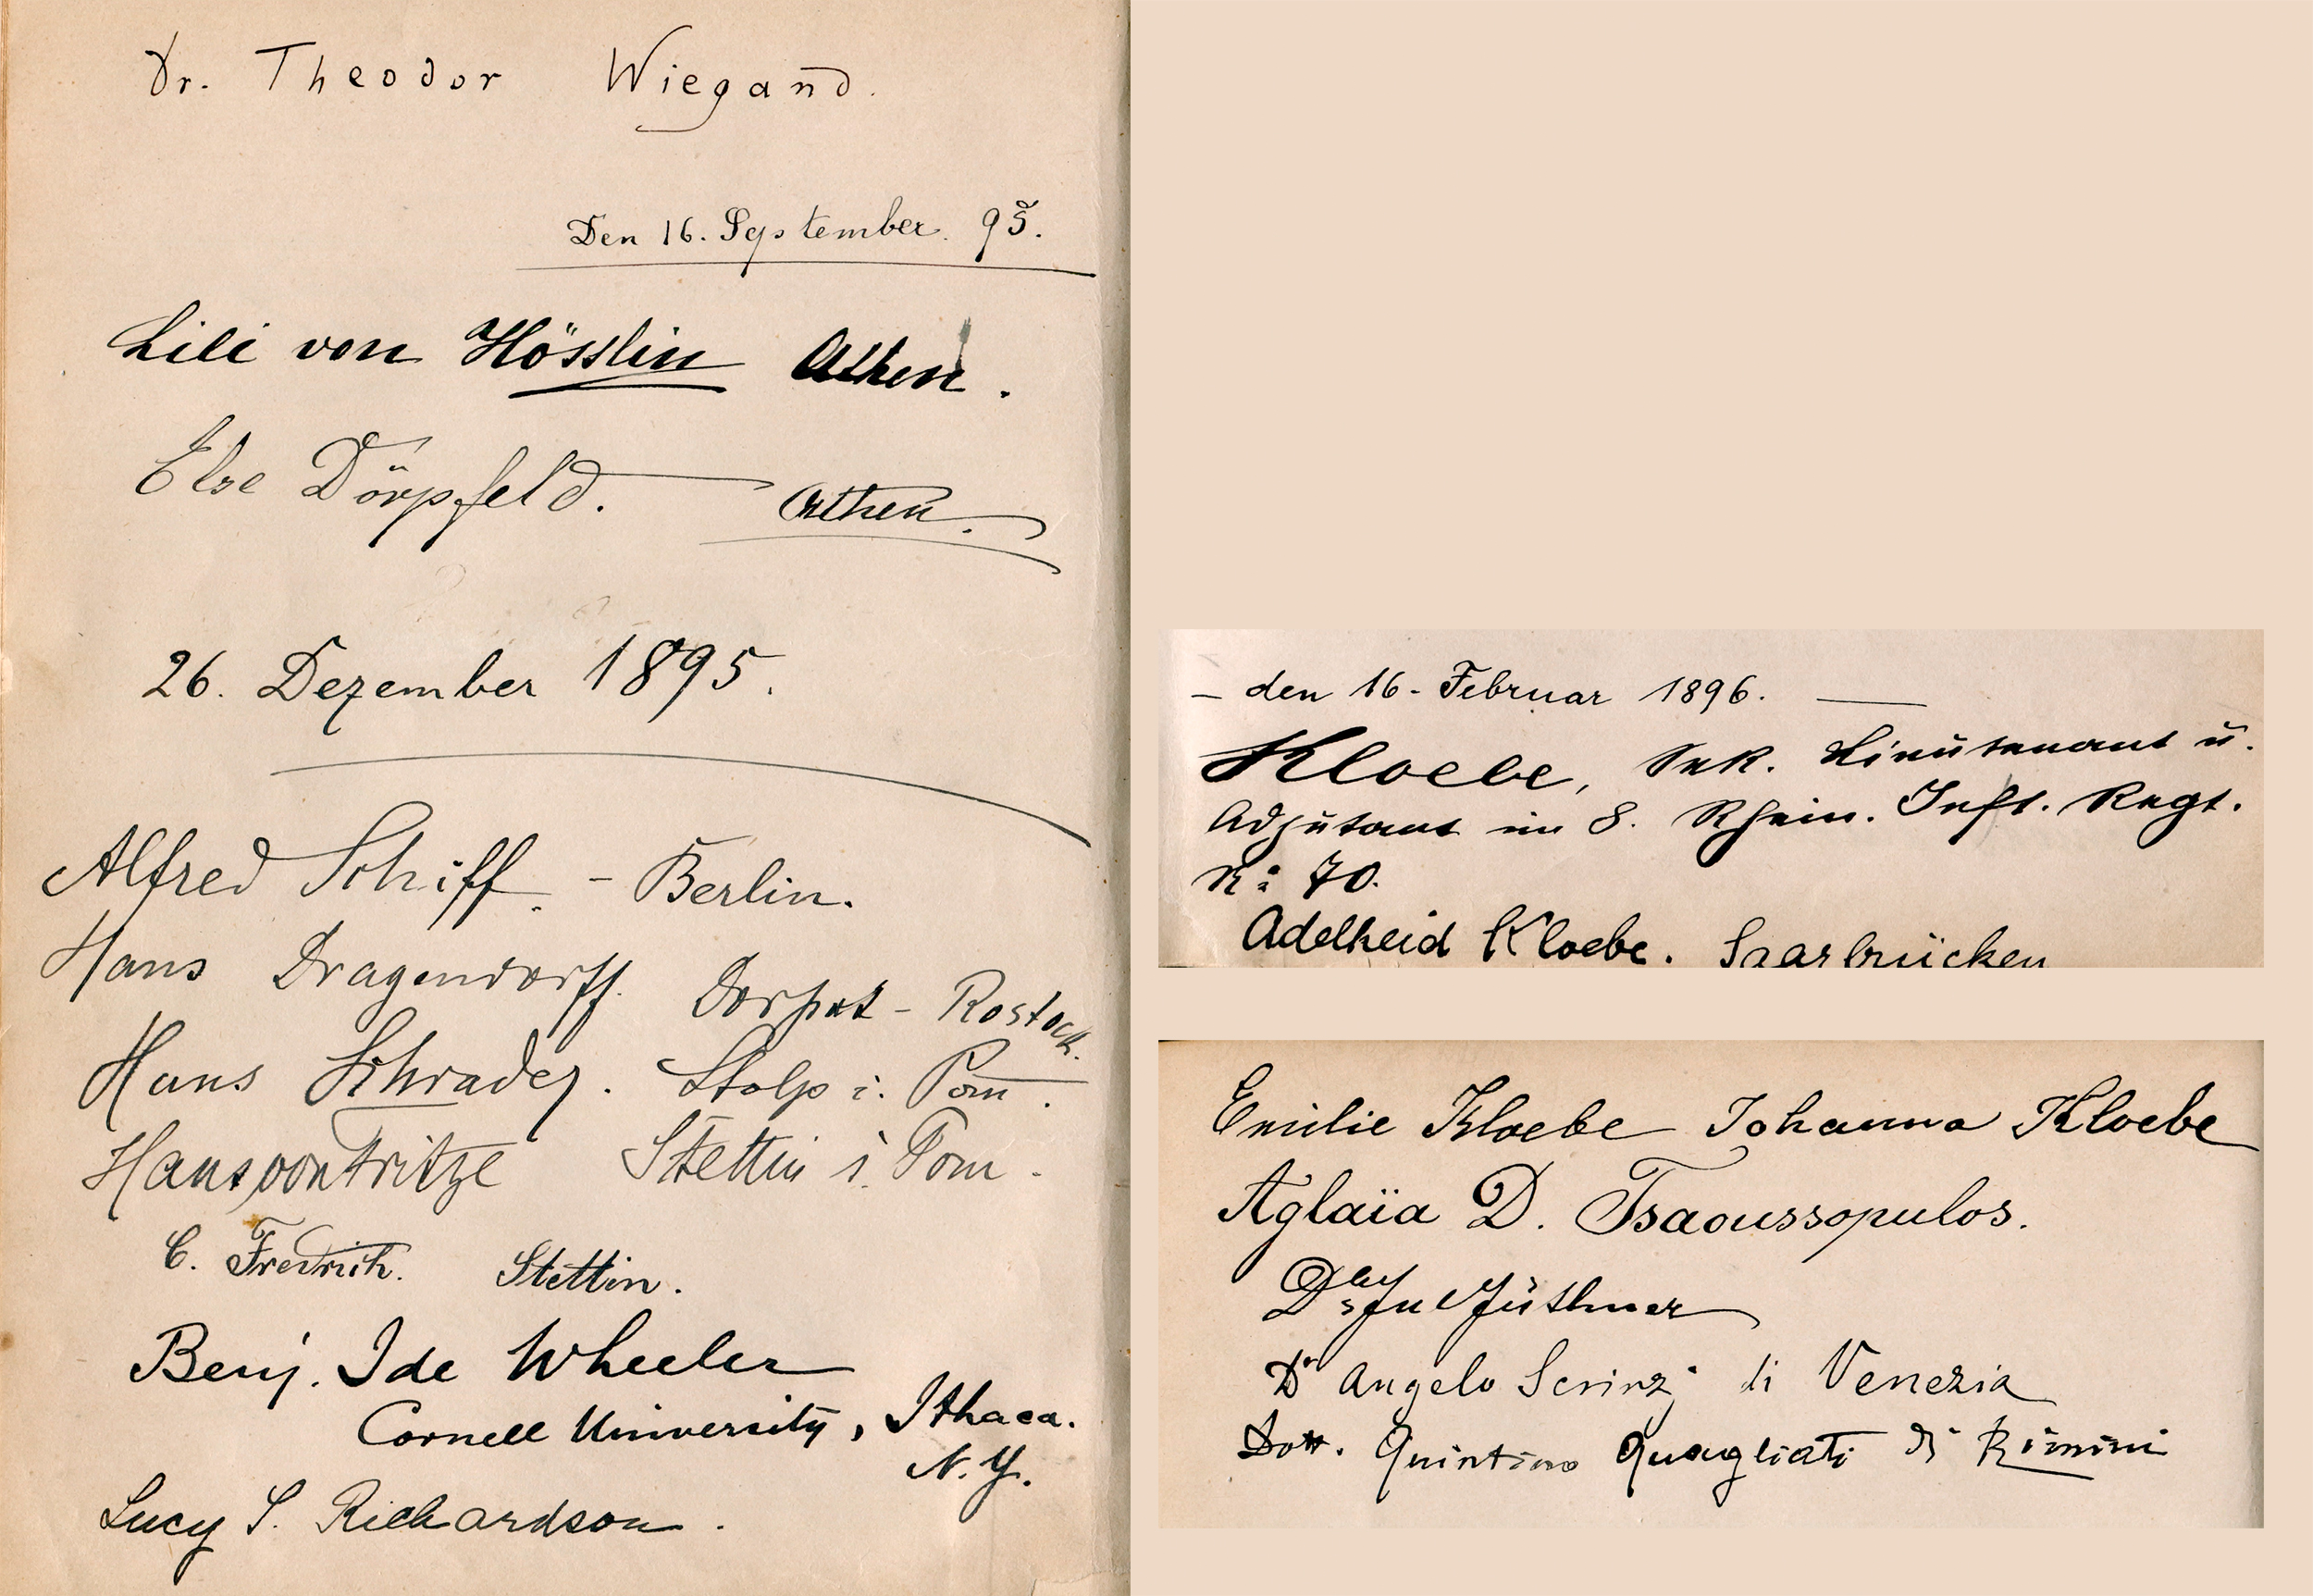 Dr. Theodor Wiegand.
Den 16. September. 95.
Lili von Hösslin Athen.
Else Dörpfeld. Athen.
26. Dezember 1895.
Alfred Schiff. - Berlin.
Hans Dragendorff. Dorpat - Rostock.
Hans Schrader. Stolp i. Pom.
Hans von Fritze Stettin i. Pom.
C. Fredrich. Stettin.
Benj. Ide Wheeler
Cornell University, Ithaca.
N. Y.
Lucy S. Richardson.
– den 16. Februar 1896. —
Kloebe, Sek. Lieutenant u.
Adjutant im 8. Rhein. Inft. Regt.
No: 70.
Adelheid Kloebe. Saarbrücken
Emilie Kloebe Johanna Kloebe
Aglaïa D. Tsaoussopulos.
Dr Jüthner
Dr Angelo Scrinzi di Venezia
Dott. Quintino Quagliati di Rimini